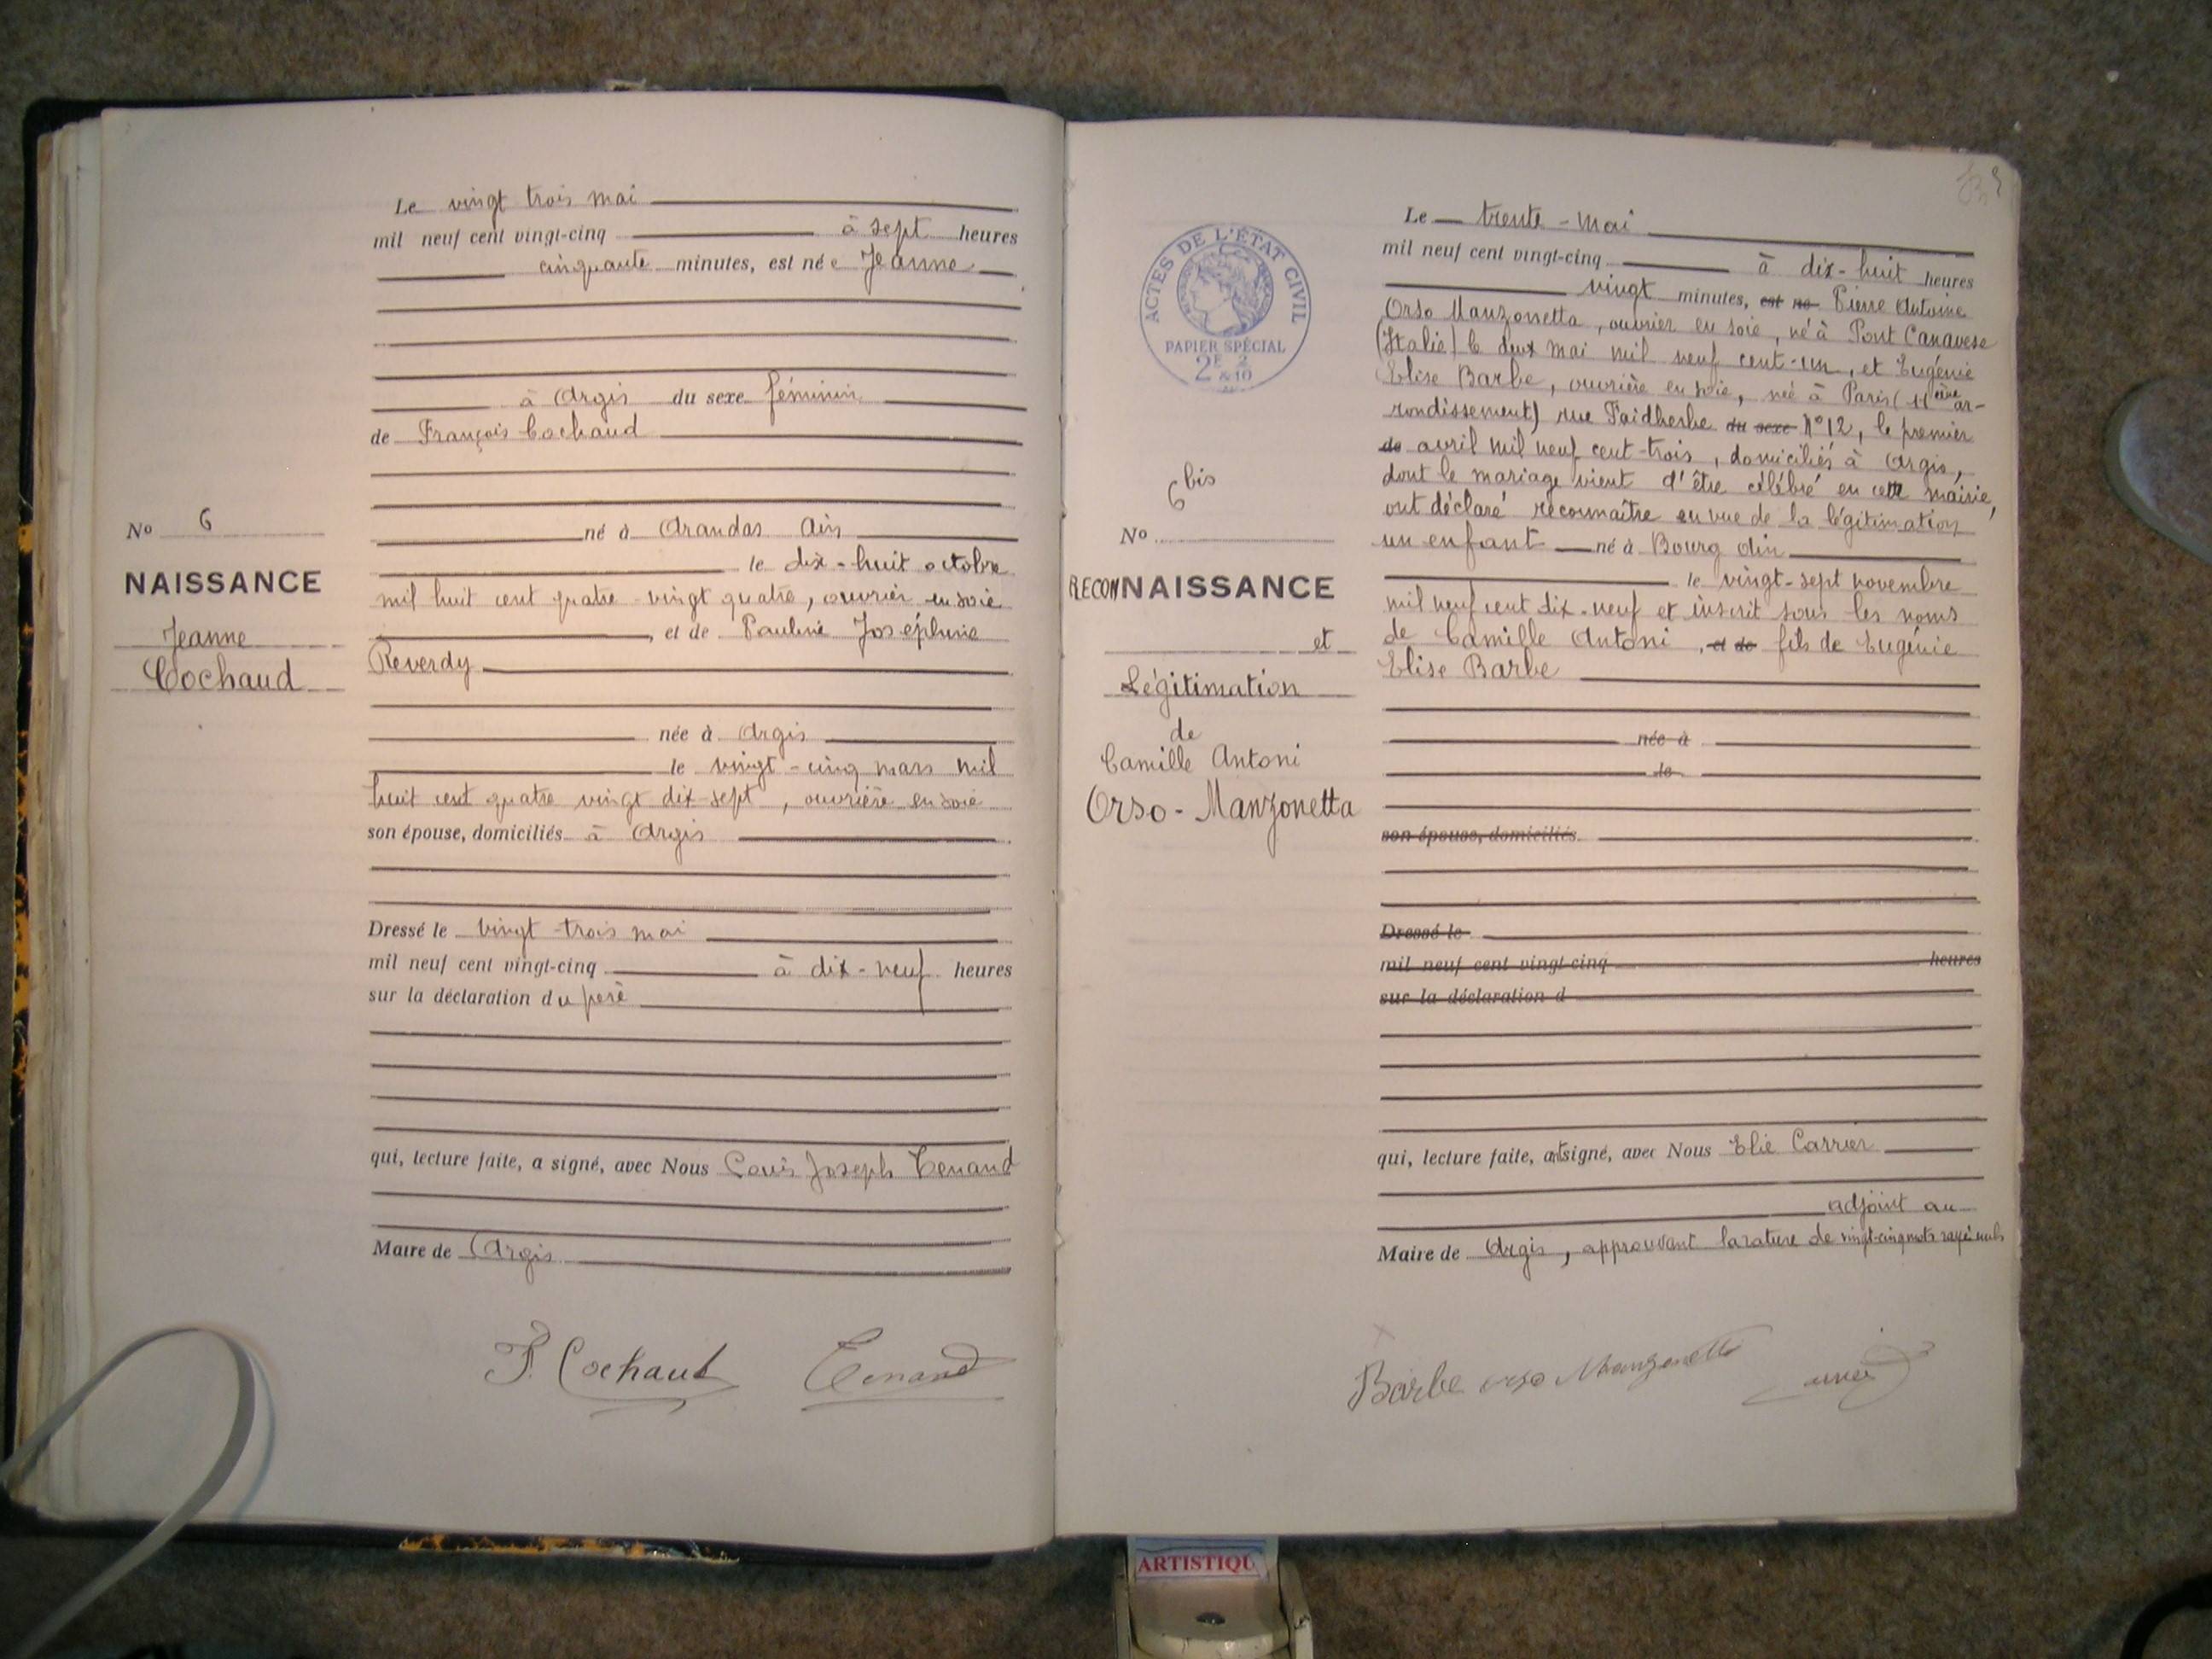 Le vingt trois mai
mil neuf cent vingt-cinq à sept heures
cinquante minutes, est née Jeanne
à Argis du sexe féminin
de François Cochaud
No 6
né à Arandas Ain
le dix-huit octobre
NAISSANCE
mil huit cent quatre-vingt quatre, ouvrier en soie
Jeanne
, et de Pauline Joséphine
Cochaud
Reverdy
née à Argis
le vingt-cinq mars mil
huit cent quatre vingt dix-sept, ouvrière en soie
son épouse, domiciliés à Argis
Dressé le vingt-trois mai
mil neuf cent vingt-cinq à dix-neuf heures
sur la déclaration du père
qui, lecture faite, a signé, avec Nous Louis Joseph Tenand
Maire de Argis
F. Cochaud Tenand
ACTES DE L'ÉTAT CIVIL
PAPIER SPÉCIAL
2E & 2/10
Le trente-mai
mil neuf cent vingt-cinq à dix-huit heures
vingt minutes, est né Pierre Antoine
Orso Manzonetta, ouvrier en soie, né à Pont Canavese
(Italie) le deux mai mil neuf cent-un, et Eugénie
Elise Barbe, ouvrière en soie, née à Paris (11ème ar-
rondissement) rue Faidherbe du sexe N°12, le premier
de avril mil neuf cent-trois, domiciliés à Argis,
dont le mariage vient d'être célébré en cette mairie,
ont déclaré reconnaître en vue de la légitimation
6 bis
No
un enfant né à Bourg Ain
le vingt-sept novembre
RECONNAISSANCE
mil neuf cent dix-neuf et inscrit sous les noms
et
de Camille Antoni, et de fils de Eugénie
Légitimation
Elise Barbe
de
Camille Antoni
Orso-Manzonetta
née à
le
son épouse, domiciliés
Dressé le
mil neuf cent vingt-cinq heures
sur la déclaration d
qui, lecture faite, ont signé, avec Nous Elie Carrier
adjoint au
Maire de Argis, approuvant la rature de vingt-cinq mots rayés nuls
Barbe orso Manzonetta
ARTISTIQU